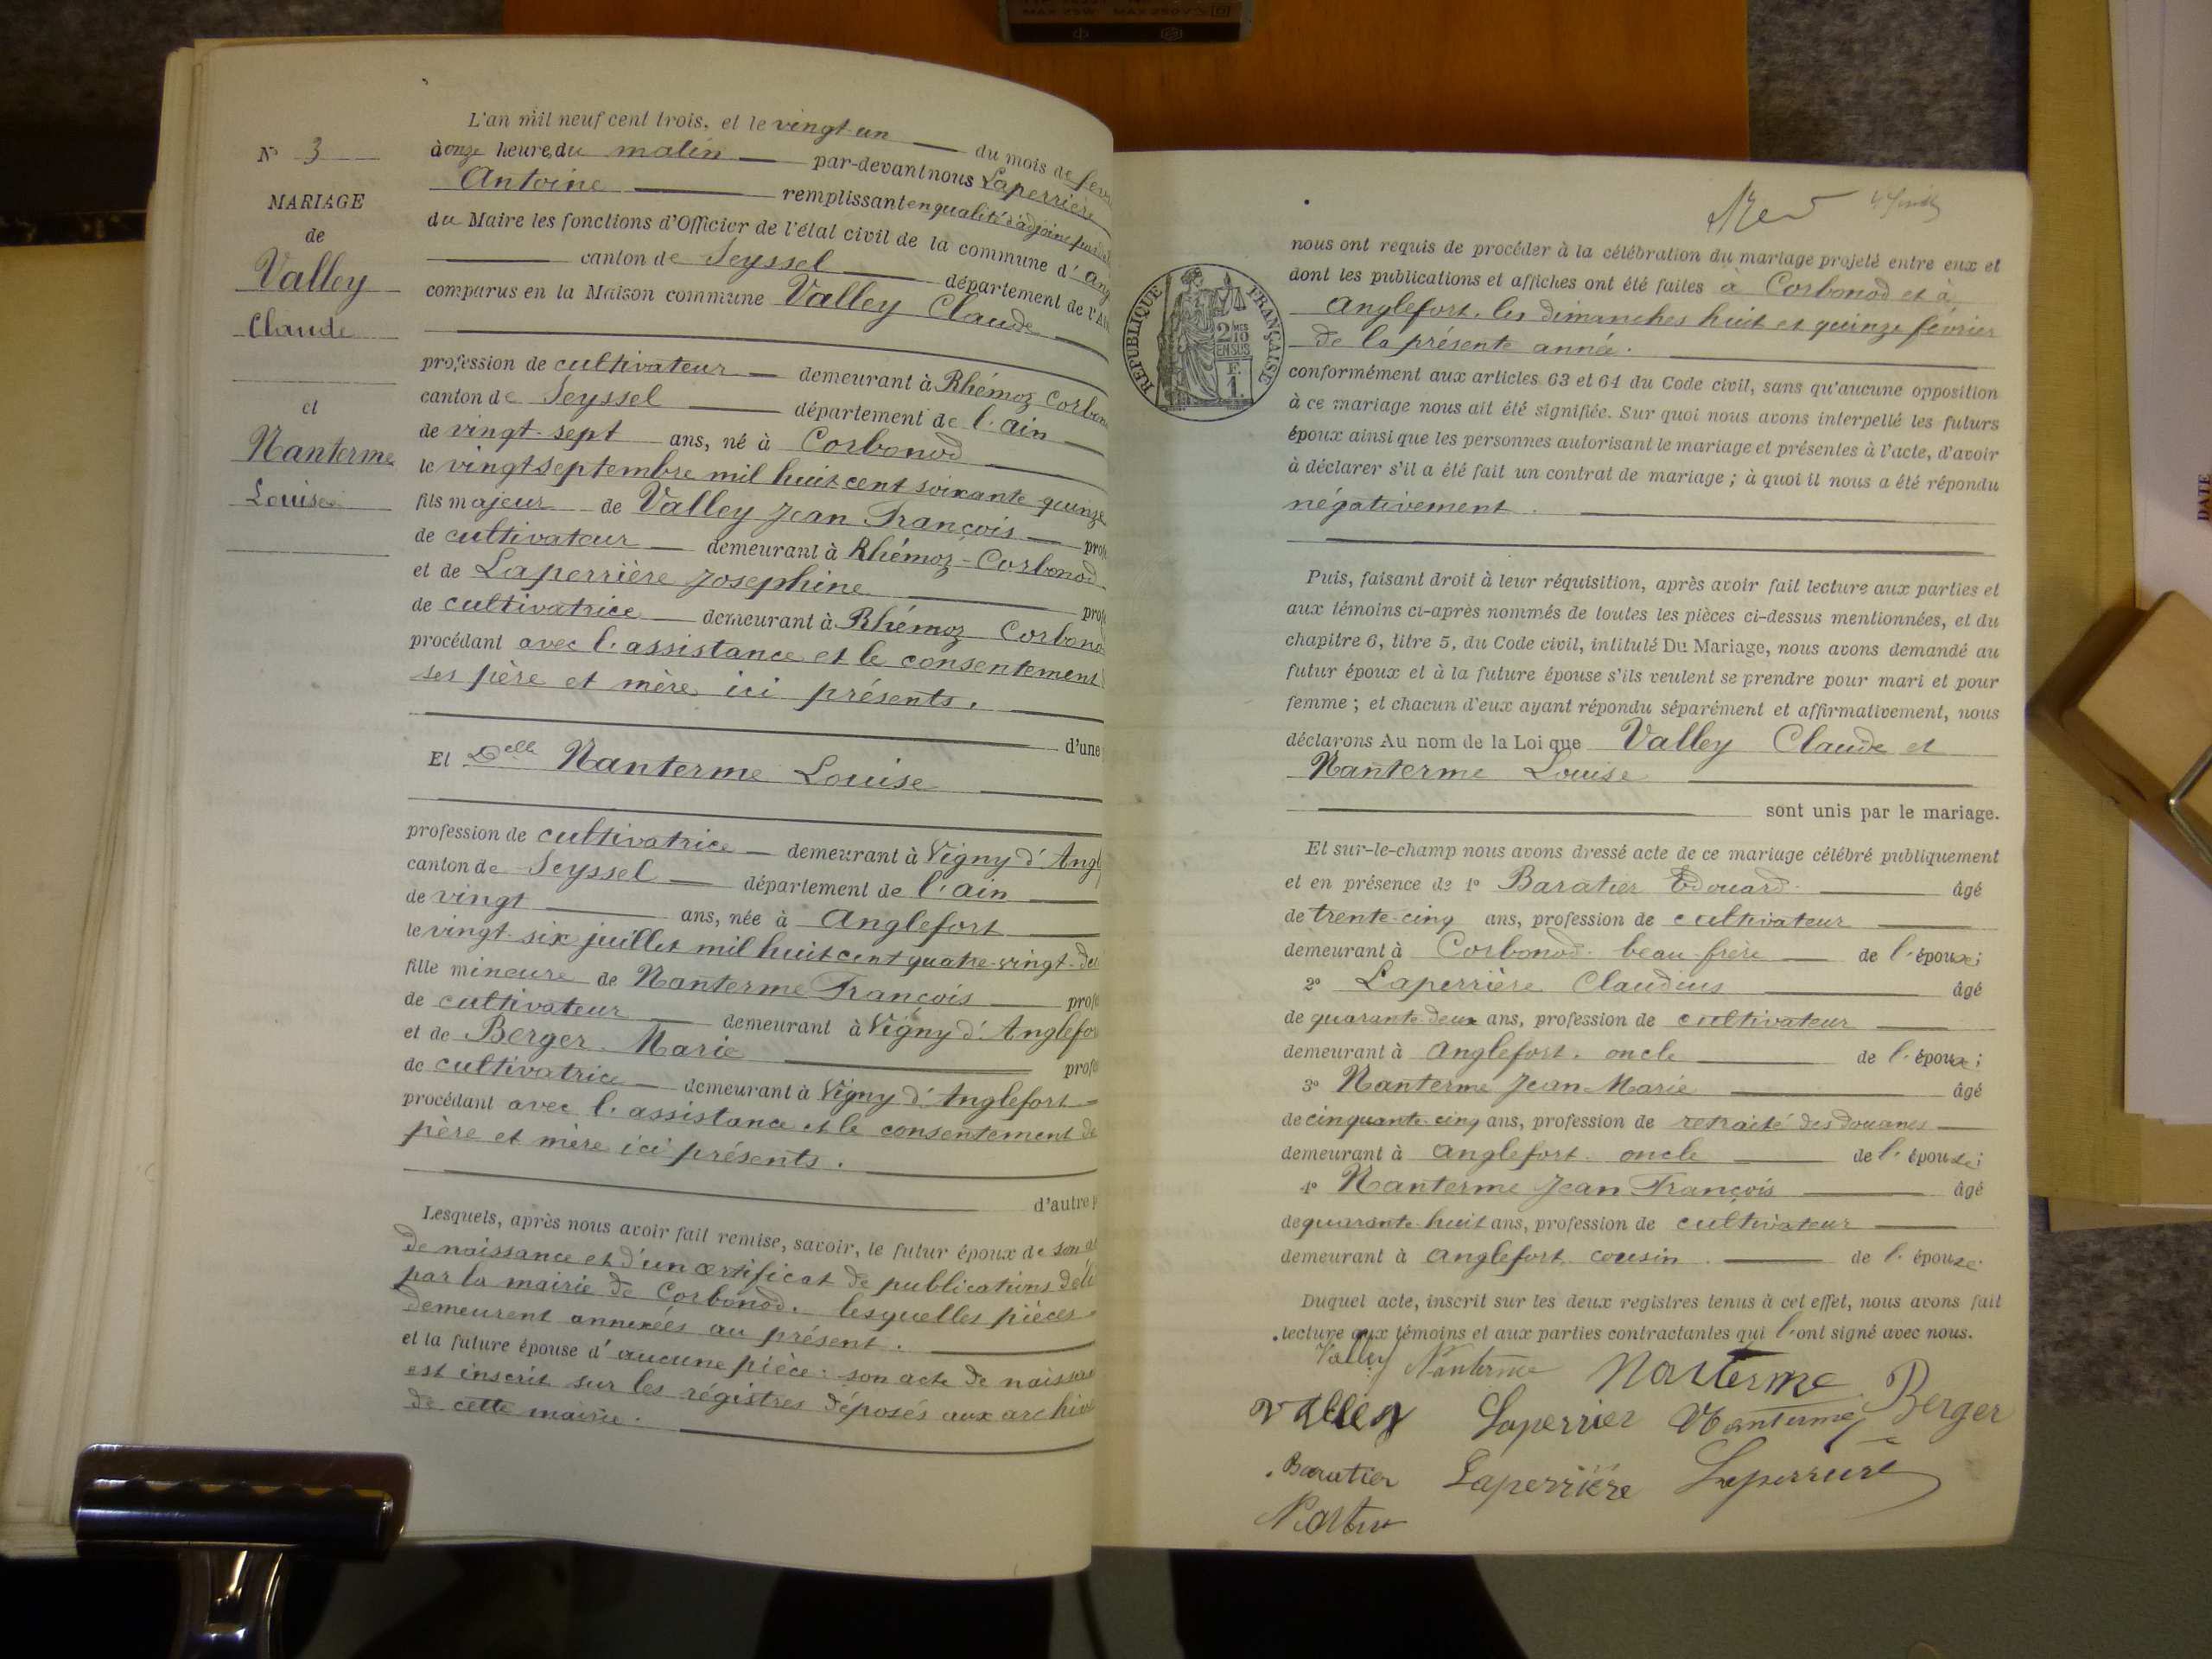 N° 3
MARIAGE
de
Valley
Claude
et
Nanterme
Louise
L'an mil neuf cent trois, et le vingt-un du mois de fev
à onze heures du matin par-devant nous Laperrière
Antoine remplissant en qualité d'adjoint
du Maire les fonctions d'Officier de l'état civil de la commune d'Ang
canton de Seyssel département de l'Ai
comparus en la Maison commune Valley Claude
profession de cultivateur demeurant à Rhémoz Corbon
canton de Seyssel département de l'ain
de vingt-sept ans, né à Corbonod
le vingt septembre mil huit cent soixante quinze
fils majeur de Valley Jean François prof
de cultivateur demeurant à Rhémoz-Corbonod
et de Laperrière Josephine prof
de cultivatrice demeurant à Rhémoz Corbono
procédant avec l'assistance et le consentement
ses père et mère ici présents.
d'une
Et Delle Nanterme Louise
profession de cultivatrice demeurant à Vigny d'Angl
canton de Seyssel département de l'ain
de vingt ans, née à Anglefort
le vingt-six juillet mil huit cent quatre-vingt-deu
fille mineure de Nanterme François prof
de cultivateur demeurant à Vigny d'Anglefor
et de Berger Marie profe
de cultivatrice demeurant à Vigny d'Anglefort
procédant avec l'assistance et le consentement de
père et mère ici présents.
d'autre p
Lesquels, après nous avoir fait remise, savoir, le futur époux de son a
de naissance et d'un certificat de publications déli
par la mairie de Corbonod, lesquelles pièces
demeurent annexées au présent.
et la future épouse d'aucune pièce: son acte de naissan
est inscrit sur les régistres déposés aux archiv
de cette mairie.
nous ont requis de procéder à la célébration du mariage projeté entre eux et
dont les publications et affiches ont été faites à Corbonod et à
Anglefort, les dimanches huit et quinze février
de la présente année.
RÉPUBLIQUE FRANÇAISE
2 MES
10
EN SUS
F.
1.
conformément aux articles 63 et 64 du Code civil, sans qu'aucune opposition
à ce mariage nous ait été signifiée. Sur quoi nous avons interpellé les futurs
époux ainsi que les personnes autorisant le mariage et présentes à l'acte, d'avoir
à déclarer s'il a été fait un contrat de mariage ; à quoi il nous a été répondu
négativement.
Puis, faisant droit à leur réquisition, après avoir fait lecture aux parties et
aux témoins ci-après nommés de toutes les pièces ci-dessus mentionnées, et du
chapitre 6, titre 5, du Code civil, intitulé Du Mariage, nous avons demandé au
futur époux et à la future épouse s'ils veulent se prendre pour mari et pour
femme ; et chacun d'eux ayant répondu séparément et affirmativement, nous
déclarons Au nom de la Loi que Valley Claude et
Nanterme Louise
sont unis par le mariage.
Et sur-le-champ nous avons dressé acte de ce mariage célébré publiquement
et en présence de 1° Baratier Edouard âgé
de trente-cinq ans, profession de cultivateur
demeurant à Corbonod beau-frère de l'épouse;
2° Laperrière Claudius âgé
de quarante-deux ans, profession de cultivateur
demeurant à Anglefort, oncle de l'époux;
3° Nanterme Jean-Marie âgé
de cinquante-cinq ans, profession de retraité des douanes
demeurant à Anglefort oncle de l'épouse;
4° Nanterme Jean François âgé
de quarante-huit ans, profession de cultivateur
demeurant à Anglefort cousin de l'épouse.
Duquel acte, inscrit sur les deux registres tenus à cet effet, nous avons fait
lecture aux témoins et aux parties contractantes qui l'ont signé avec nous.
Valley Nanterme Nanterme
Valley Laperrier Nanterme Berger
Baratier Laperrière Laperrière
DATE